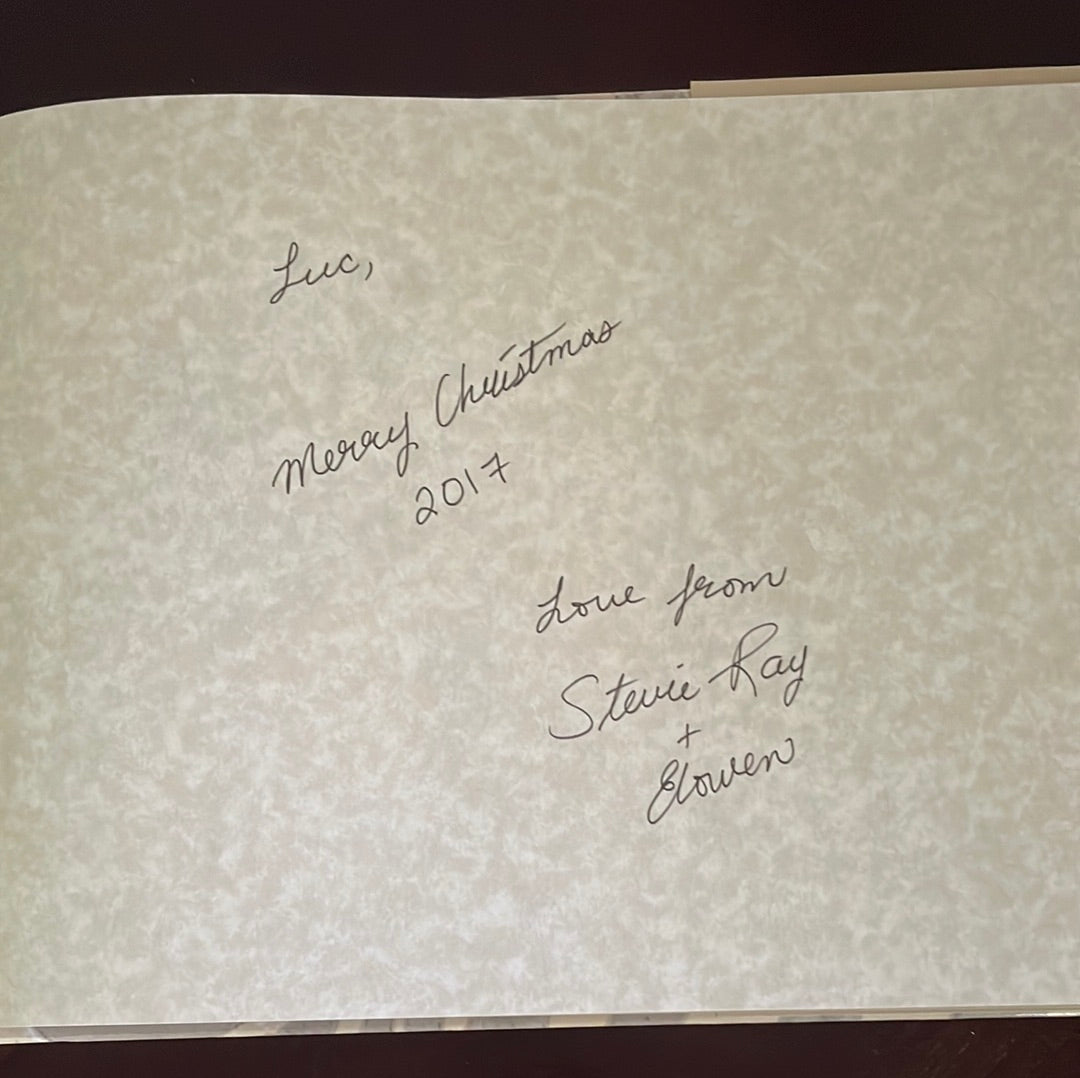 Luc,
Merry Christmas
2017
Love from
Stevie Ray
+
Elowen